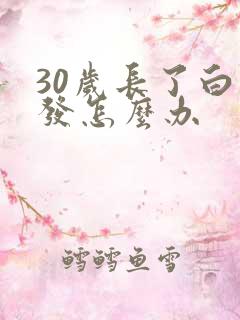 30歲長了白
發怎麼办
鱈鱈鱼雪